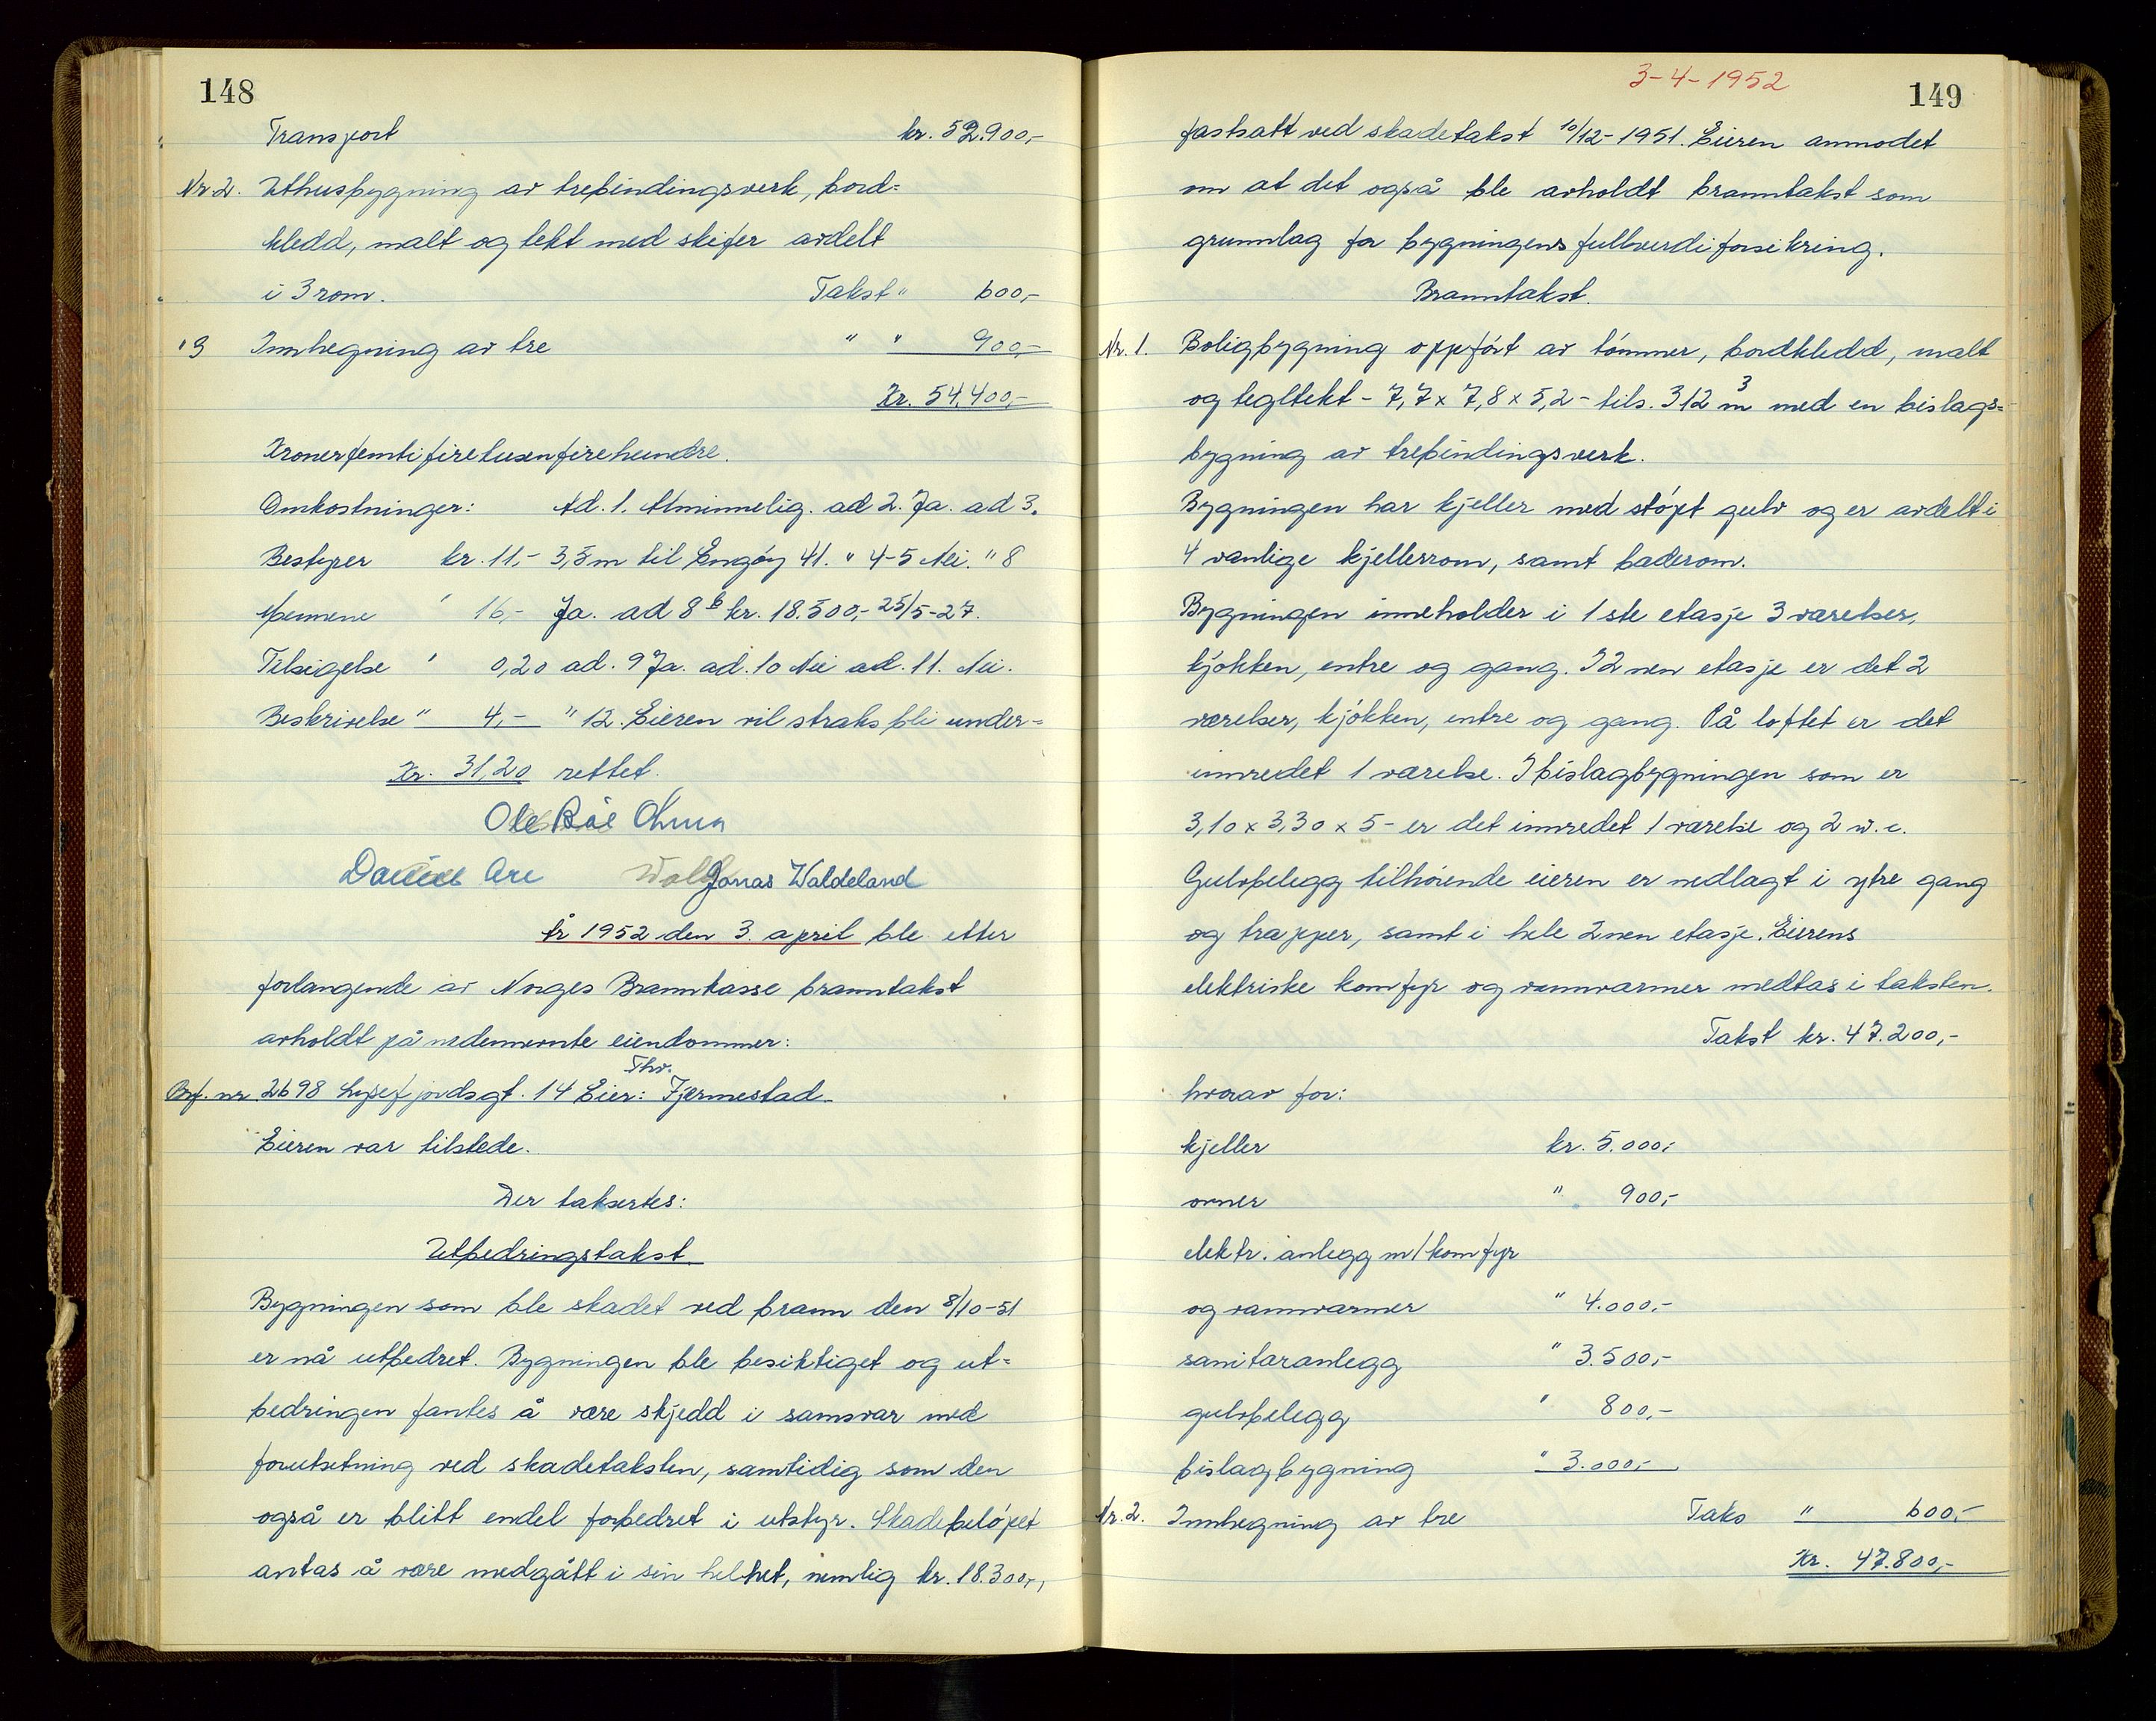 148
Transport kr. 52.900,-
Nr. 2. Uthusbygning av trebindingsverk, bord=
kledd, malt og tekt med skifer avdelt
i 3 rom. Takst " 600,-
" 3 Innhegning av tre " " 900,-
Kr. 54.400,-
Kronerfemtifiretusenfirehundre.
Omkostninger: Ad. 1. Alminnelig. ad 2. Ja. ad 3.
Bestyrer kr. 11,- 3,5 m til Engøy 41. " 4-5 Nei. " 8
Mennene " 16,- Ja. ad 8 b kr. 18.500,- 25/5-27.
Tilsigelse " 0,20 ad. 9 Ja. ad. 10 Nei ad. 11. Nei.
Beskrivelse " 4,- " 12. Eieren vil straks bli under=
Kr. 31,20 rettet.
Ole Båe
Jonas Waldeland
År 1952 den 3. april ble etter
forlangende av Norges Brannkasse branntakst
avholdt på nedennevnte eiendommer:
Thv.
Brf. nr. 2698 Lysefjordsgt. 14 Eier: Fjermestad
Eieren var tilstede.
Der taksertes:
Utbedringstakst.
Bygningen som ble skadet ved brann den 8/10-51
er nå utbedret. Bygningen ble besiktiget og ut=
bedringen fantes å være skjedd i samsvar med
forutsetning ved skadetaksten, samtidig som den
også er blitt endel forbedret i utstyr. Skadebeløpet
antas å være medgått i sin helhet, nemlig kr. 18.300,-,
3-4-1952
149
fastsatt ved skadetakst 10/12-1951. Eieren anmodet
om at det også ble avholdt branntakst som
grunnlag for bygningens fullverdiforsikring.
Branntakst.
Nr. 1. Boligbygning oppført av tømmer, bordkledd, malt
og tegltekt - 7,7 x 7,8 x 5,2 - tils. 312 m³ med en bislags=
bygning av trebindingsverk.
Bygningen har kjeller med støpt gulv og er avdelt i
4 vanlige kjellerrom, samt baderom.
Bygningen inneholder i 1ste etasje 3 værelser,
kjøkken, entre og gang. I 2nen etasje er det 2
værelser, kjøkken, entre og gang. På loftet er det
innredet 1 værelse. I bislagbygningen som er
3,10 x 3,30 x 5 - er det innredet 1 værelse og 2 w.c.
Gulvbelegg tilhørende eieren er nedlagt i ytre gang
og trapper, samt i hele 2nen etasje. Eierens
elektriske komfyr og vannvarmer medtas i taksten.
Takst kr. 47.200,-
hvorav for:
kjeller kr. 5.000,-
ovner " 900,-
elektr. anlegg m/komfyr
og vannvarmer " 4.000,-
sanitæranlegg " 3.500,-
gulvbelegg " 800,-
bislagbygning " 3.000,-
Nr. 2. Innhegning av tre Taks " 600,-
Kr. 47.800,-